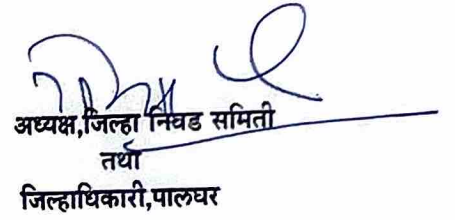 अध्यक्ष,जिल्हा निवड समिती
तथा
जिल्हाधिकारी,पालघर